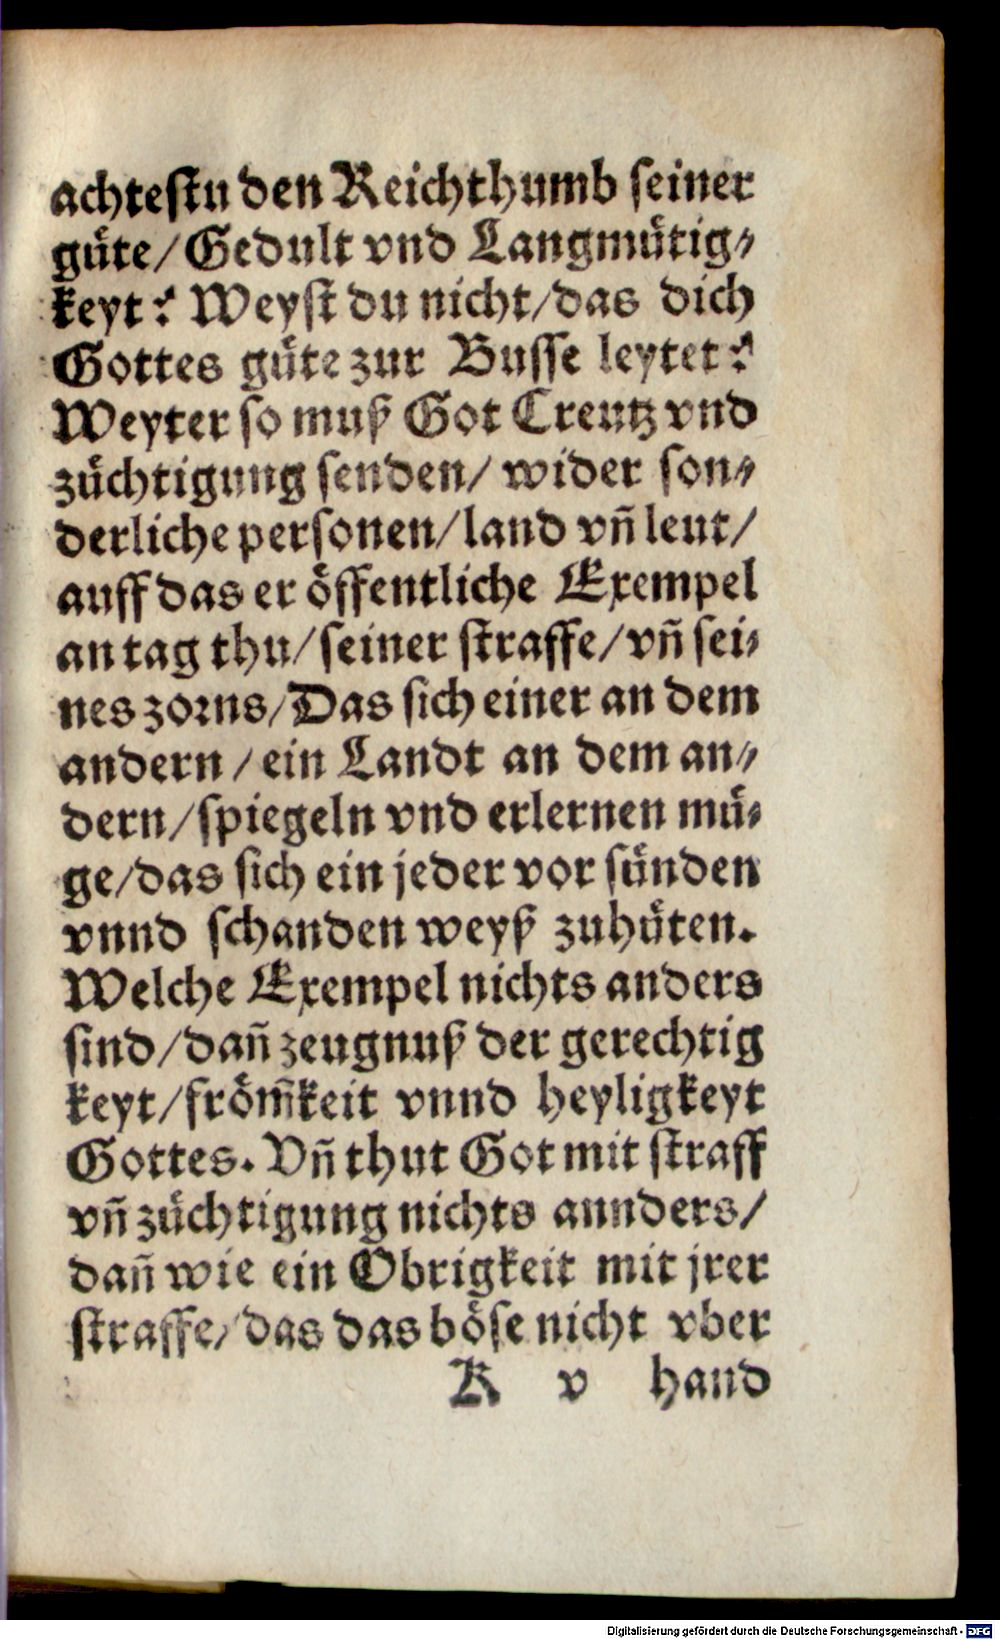 achtestu den Reichthumb seiner
güte/ Gedult vnd Langmütig⸗
keyt? Weyst du nicht/ das dich
Gottes güte zur Busse leytet?
Weyter so muß Got Creutz vnd
züchtigung senden/ wider son⸗
derliche personen/ land vñ leut/
auff das er öffentliche Exempel
an tag thu/ seiner straffe/ vñ sei⸗
nes zorns/ Das sich einer an dem
andern/ ein Landt an dem an⸗
dern/ spiegeln vnd erlernen mü⸗
ge/ das sich ein jeder vor sünden
vnnd schanden weyß zuhüten.
Welche Exempel nichts anders
sind/ dañ zeugnuß der gerechtig
keyt/ fröm̃keit vnnd heyligkeyt
Gottes. Vñ thut Got mit straff
vñ züchtigung nichts annders/
dañ wie ein Obrigkeit mit jrer
straffe/ das das böse nicht vber
K v hand
Digitalisierung gefördert durch die Deutsche Forschungsgemeinschaft - DFG